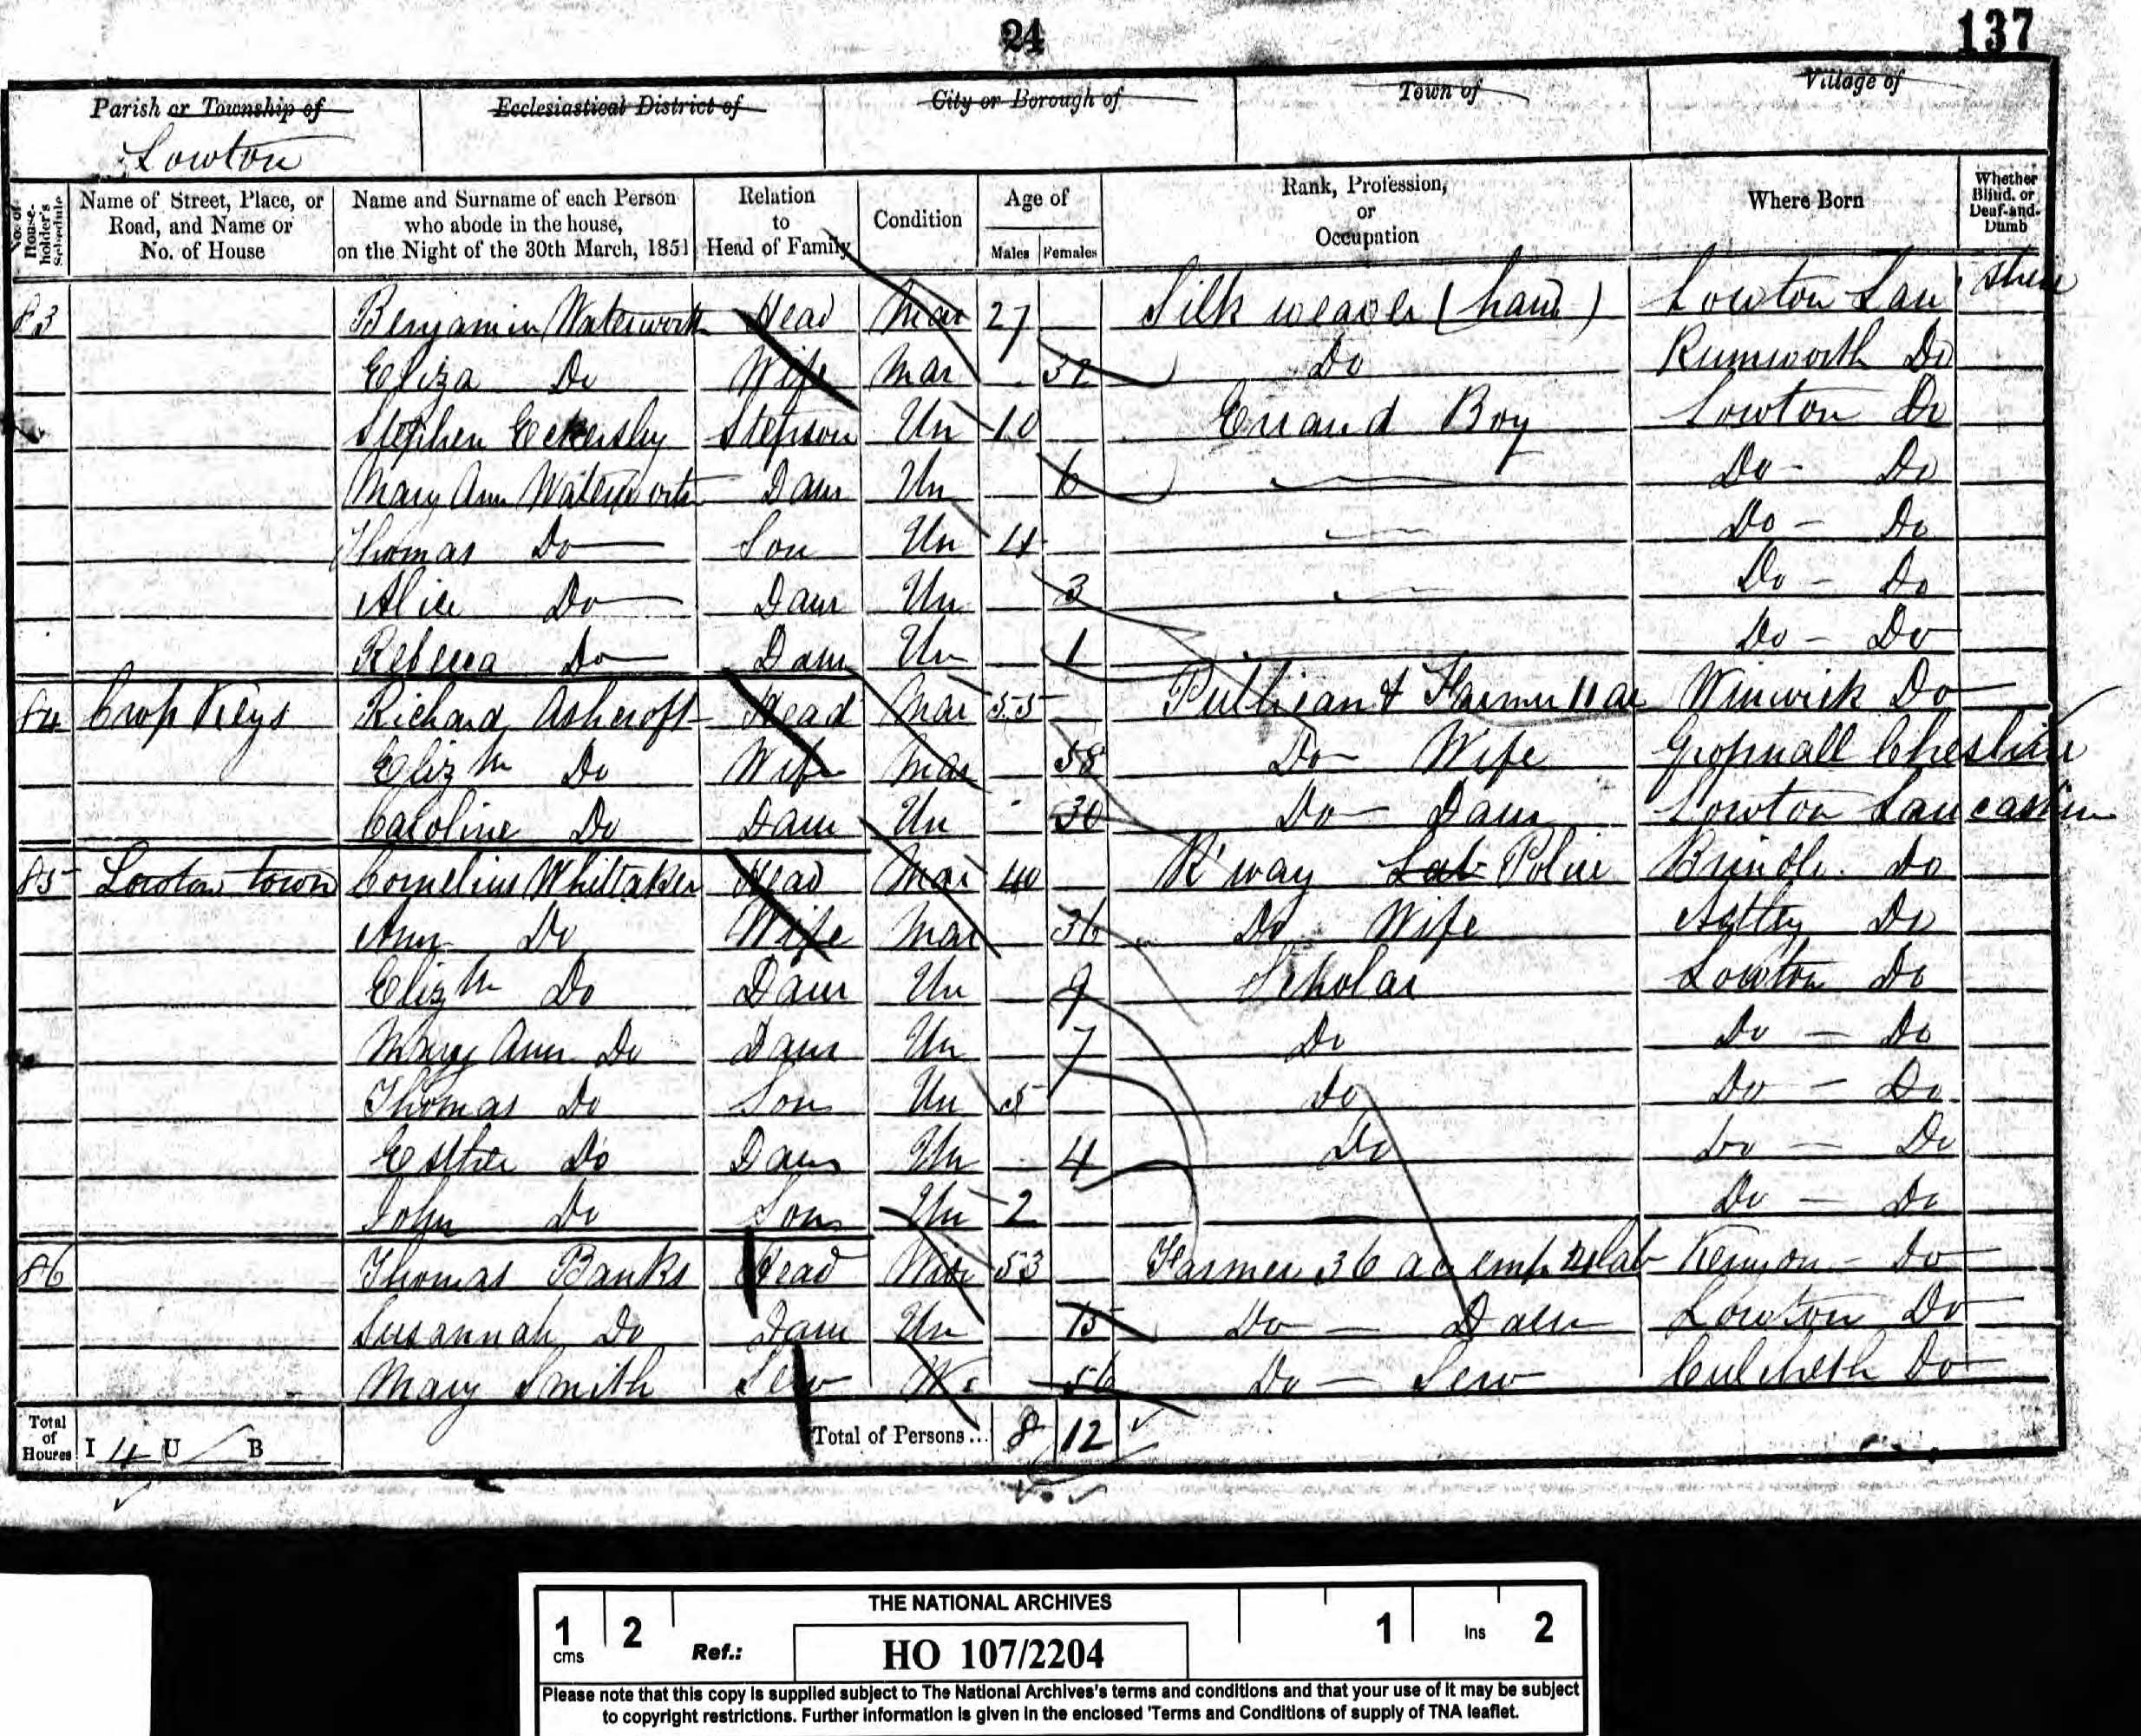 24
137
Parish or Township of
Lowton
Ecclesiastical District of
City or Borough of
Town of
Village of
No. of House-holder's Schedule
Name of Street, Place, or Road, and Name or No. of House
Name and Surname of each Person who abode in the house, on the Night of the 30th March, 1851
Relation to Head of Family
Condition
Age of
Males Females
Rank, Profession, or Occupation
Where Born
Whether Blind, or Deaf-and-Dumb
83 Benjamin Waterworth Head Mar 27 Silk weaver (hand) Lowton Lan shire
Eliza Do Wife Mar 32 Do Rumworth Do
Stephen Eckersley Stepson Un 10 Errand Boy Lowton Do
Mary Ann Waterworth Daur Un 6 Do - Do
Thomas Do Son Un 4 Do - Do
Alice Do Daur Un 3 Do - Do
Rebecca Do Daur Un 1 Do - Do
84 Crop Keys Richard Ashcroft Head Mar 55 Publican & Farmer 11 ac Winwick Do
Elizth Do Wife Mar 58 Do Wife Cheshire
Caroline Do Daur Un 30 Do Daur Lowton Lancashire
85 Lowton town Cornelius Whittaker Head Mar 40 R'way Lab Police Brindle Do
Ann Do Wife Mar 36 Do Wife Astley Do
Elizth Do Daur Un 9 Scholar Lowton Do
Mary Ann Do Daur Un 7 Do Do - Do
Thomas Do Son Un 5 Do Do - Do
Esther Do Daur Un 4 Do Do - Do
John Do Son Un 2 Do - Do
86 Thomas Banks Head 53 Farmer 36 ac emp lab Kenyon - Do
Susannah Do Daur Un 15 Do - Daur Lowton Do
Mary Smith Serv W. 56 Do - Serv Culcheth Do
Total of Houses I 4 U B Total of Persons... 8 12
THE NATIONAL ARCHIVES
1 cms 2 Ref.: HO 107/2204 1 Ins 2
Please note that this copy is supplied subject to The National Archives's terms and conditions and that your use of it may be subject
to copyright restrictions. Further information is given in the enclosed 'Terms and Conditions of supply of TNA leaflet.